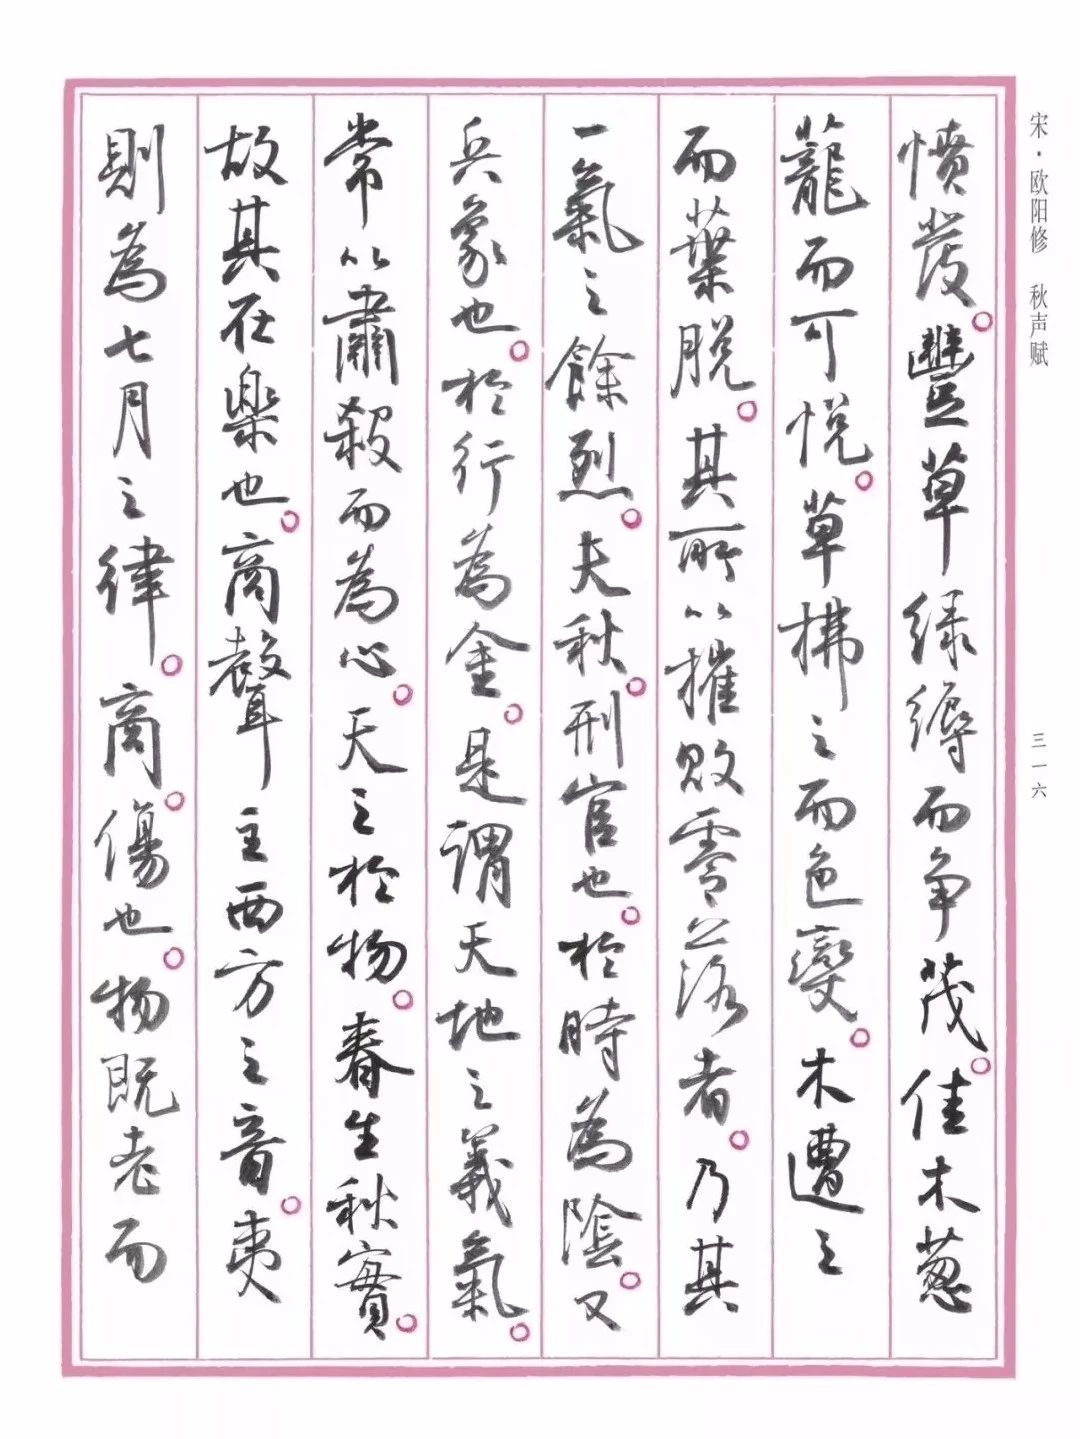 宋·欧阳修 秋声赋
三一六
憤發。豐草绿縟而争茂。佳木葱
蘢而可悦。草拂之而色變。木遭之
而葉脱。其所以摧敗零落者。乃其
一氣之餘烈。夫秋。刑官也。於時為陰。又
兵象也。於行為金。是謂天地之義氣。
常以肅殺而為心。天之於物。春生秋實。
故其在樂也。商聲主西方之音。夷
則為七月之律。商。傷也。物既老而